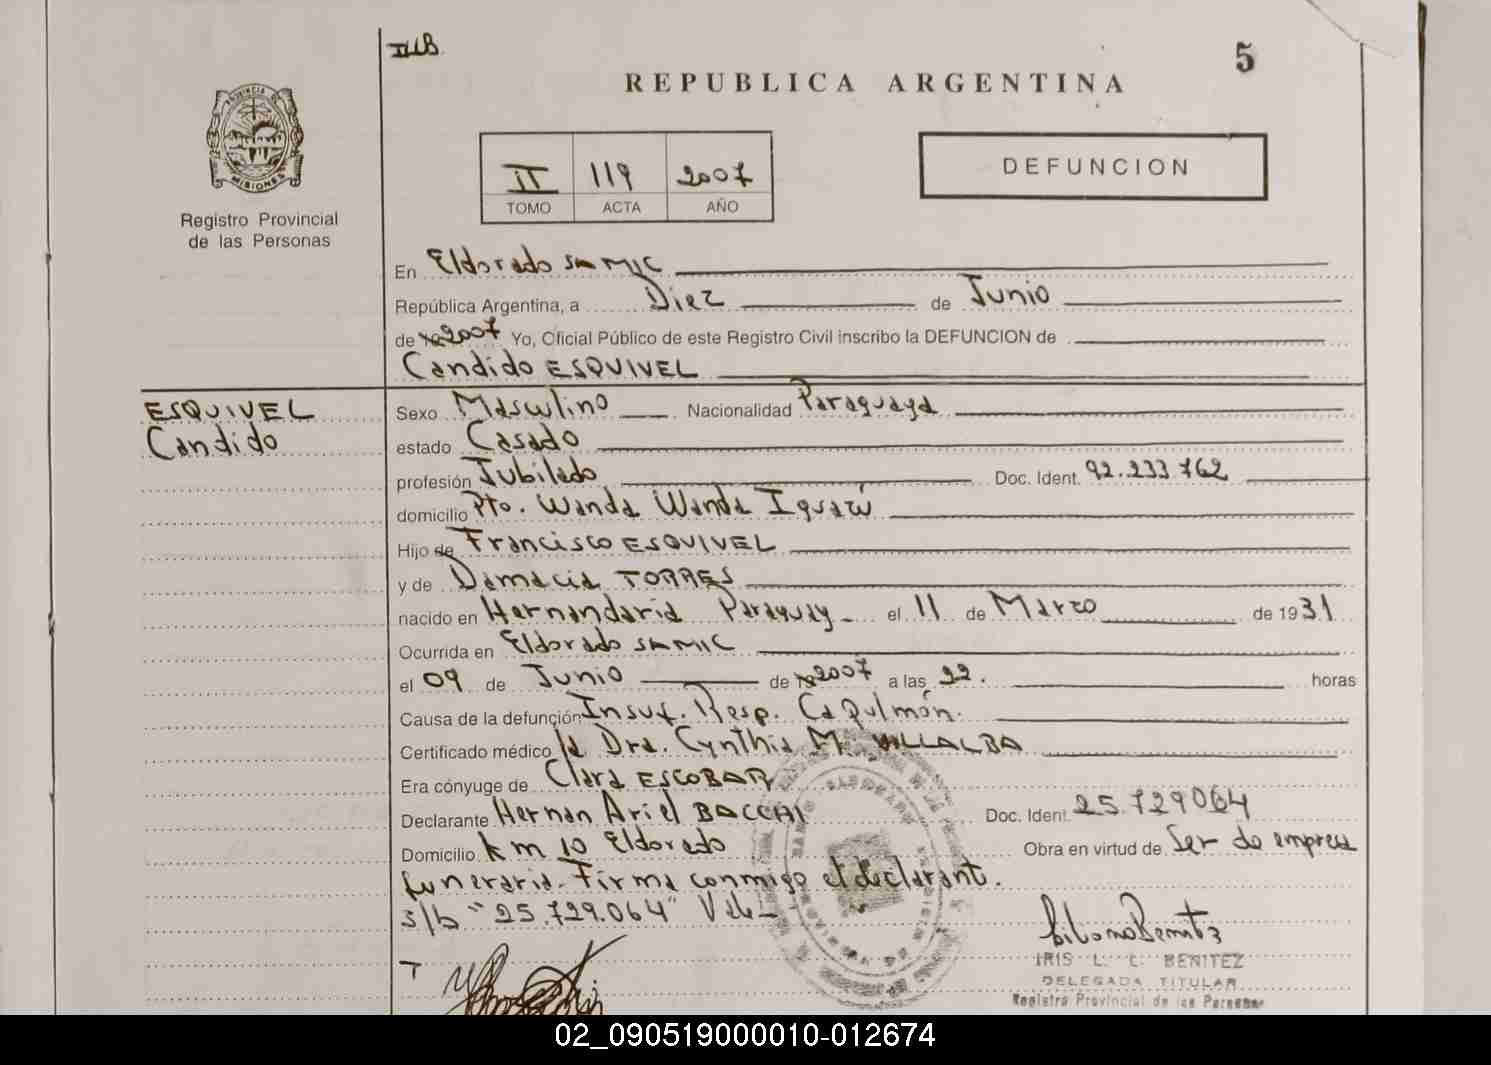 II B
5
REPUBLICA ARGENTINA
PROVINCIA DE
MISIONES
Registro Provincial
de las Personas
II 119 2007
TOMO ACTA AÑO
DEFUNCION
En Eldorado SAMIC
República Argentina, a Diez de Junio
de 2007 Yo, Oficial Público de este Registro Civil inscribo la DEFUNCION de
Candido ESQUIVEL
ESQUIVEL
Candido
Sexo Masculino Nacionalidad Paraguaya
estado Casado
profesión Jubilado Doc. Ident. 92.233.762
domicilio Pto. Wanda Wanda Iguazú
Hijo de Francisco ESQUIVEL
y de Damacia TORRES
nacido en Hernandaria Paraguay - el 11 de Marzo de 1931
Ocurrida en Eldorado SAMIC
el 09 de Junio de 2007 a las 22. horas
Causa de la defunción Insuf. Resp. Ca Pulmón.
Certificado médico la Dra. Cynthia M. VILLALBA
Era cónyuge de Clara ESCOBAR
Declarante Hernan Ariel BACCHI Doc. Ident. 25.729064
Domicilio km 10 Eldorado Obra en virtud de Ser de empresa
funeraria. Firma conmigo el declarant.
s/b "25.729.064" Vale
IRIS L. C. BENITEZ
DELEGADA TITULAR
Registro Provincial de las Personas
02_090519000010-012674